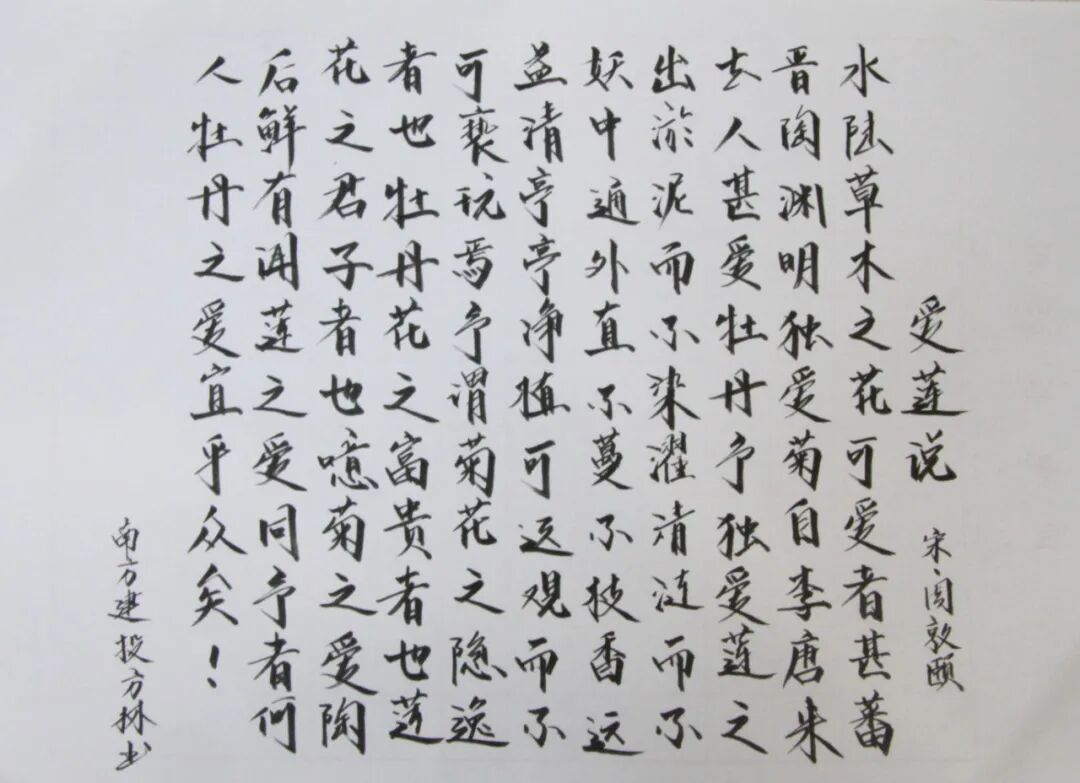 爱莲说
宋·周敦颐
水陆草木之花可爱者甚蕃
晋陶渊明独爱菊自李唐来
世人甚爱牡丹予独爱莲之
出淤泥而不染濯清涟而不
妖中通外直不蔓不枝香远
益清亭亭净植可远观而不
可亵玩焉予谓菊花之隐逸
者也牡丹花之富贵者也莲
花之君子者也噫菊之爱陶
后鲜有闻莲之爱同予者何
人牡丹之爱宜乎众矣！
南方建投方林书